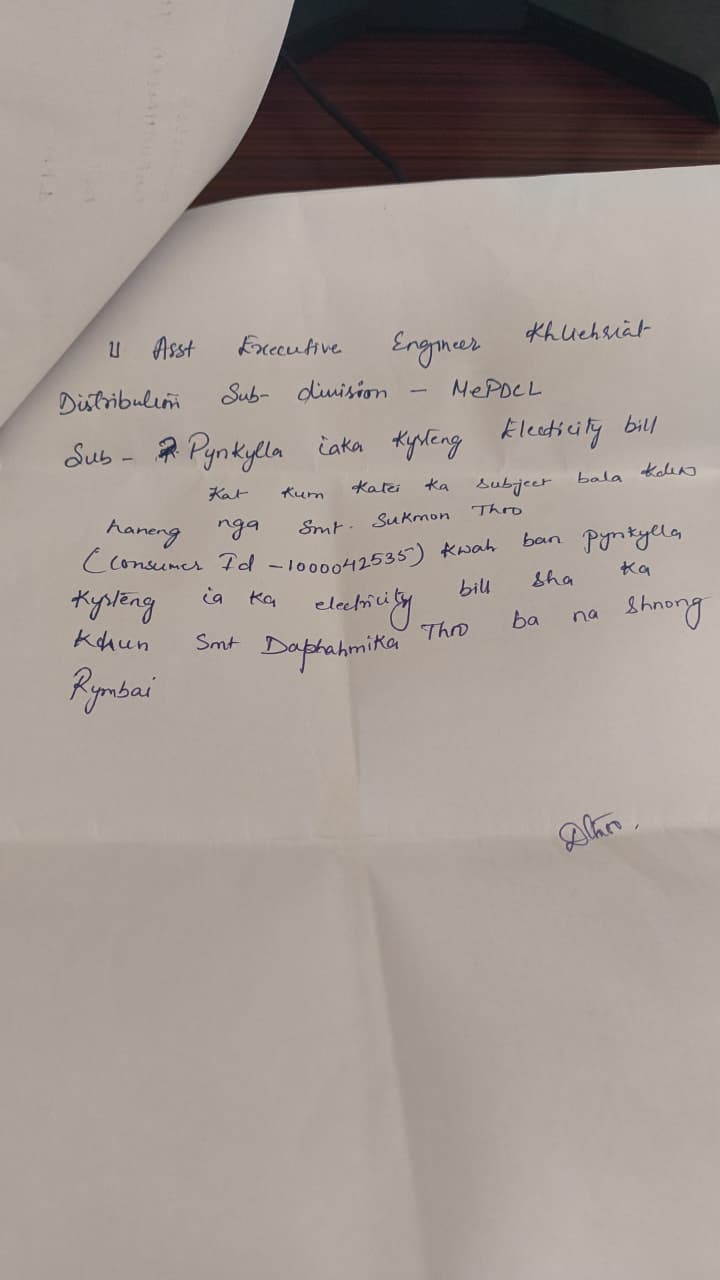 U Asst Executive Engineer Khliehriat
Distribution Sub-division - MePDCL
Sub - Pynkylla iaka Kyrteng Electicity bill
Kat kum katei ka subject bala kdew
haneng nga Smt. Sukmon Thro
(Consumer Id - 1000042535) kwah ban pynkylla
Kyrteng ia ka electricity bill sha ka
Khun Smt Daphahmika Thro ba na Shnong
Rymbai